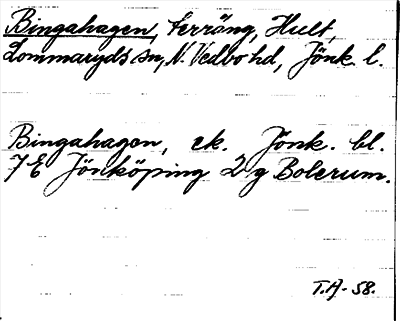 Bingahagen, terräng, Hult,
Lommaryds sn, N. Vedbo hd, Jönk. l.
Bingahagen, ek. Jönk. bl.
7 E Jönköping 2 g Bolerum.
T.A. -58.